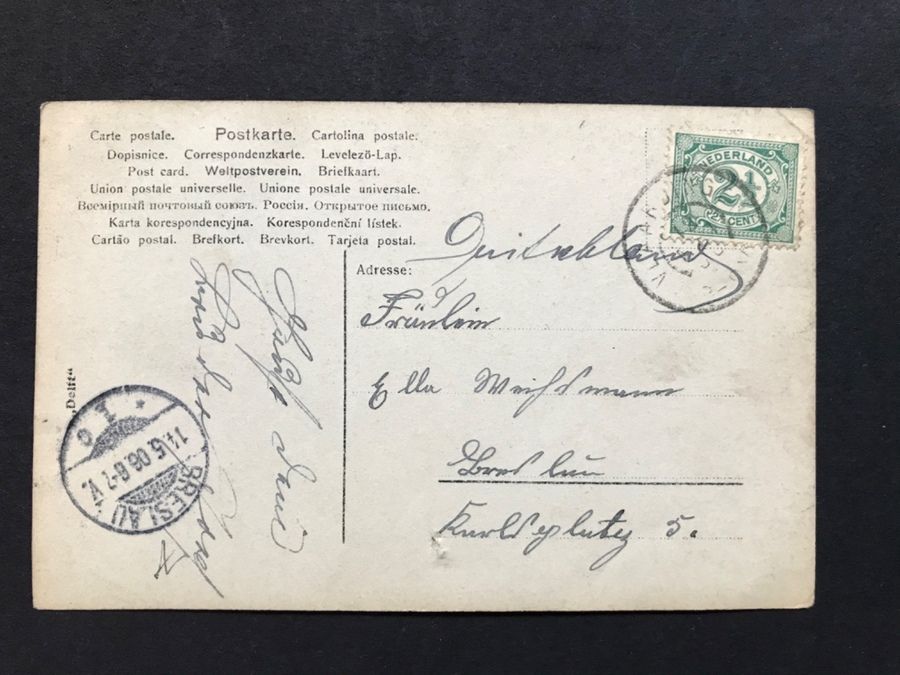 Carte postale. Postkarte. Cartolina postale.
Dopisnice. Correspondenzkarte. Levelező-Lap.
Post card. Weltpostverein. Briefkaart.
Union postale universelle. Unione postale universale.
Всемірный почтовый союзъ. Россія. Открытое письмо.
Karta korespondencyjna. Korespondenční lístek.
Cartão postal. Brefkort. Brevkort. Tarjeta postal.
NEDERLAND
2½
2½ CENT
Deutschland
Adresse:
Fräulein
Ella
Breslau
Karlsplatz 5.
„Delft“
BRESLAU
14.5.06.6-7.V.